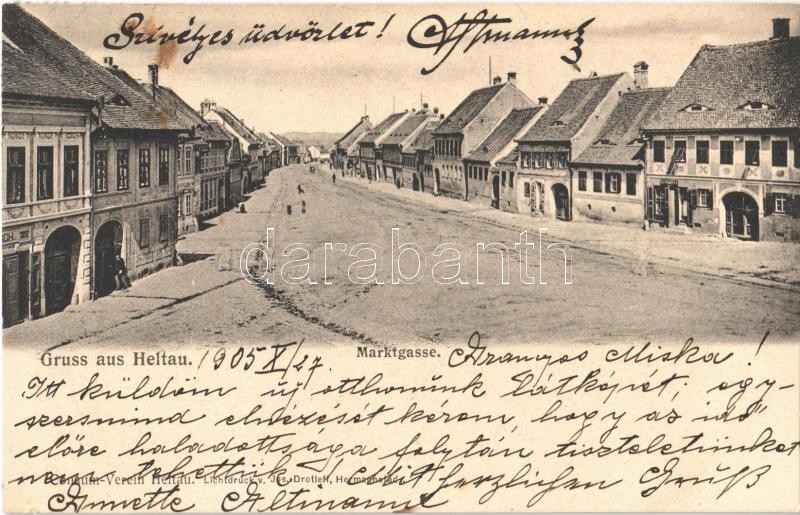 Szívélyes üdvözlet! Altmann
darabanth
Gruss aus Heltau. 1905 X/27. Marktgasse. Aranyos Miska!
Itt küldöm új otthonunk látképét, egy-
szersmind elnézését kérem, hogy az idő
előre haladottsága folytán tiszteletünket
nem tehettük. Mit herzlichen Gruß
Consum-Verein Heltau. Lichtdruck v. Jos. Drotleff, Hermannstadt.
Annette Altmann